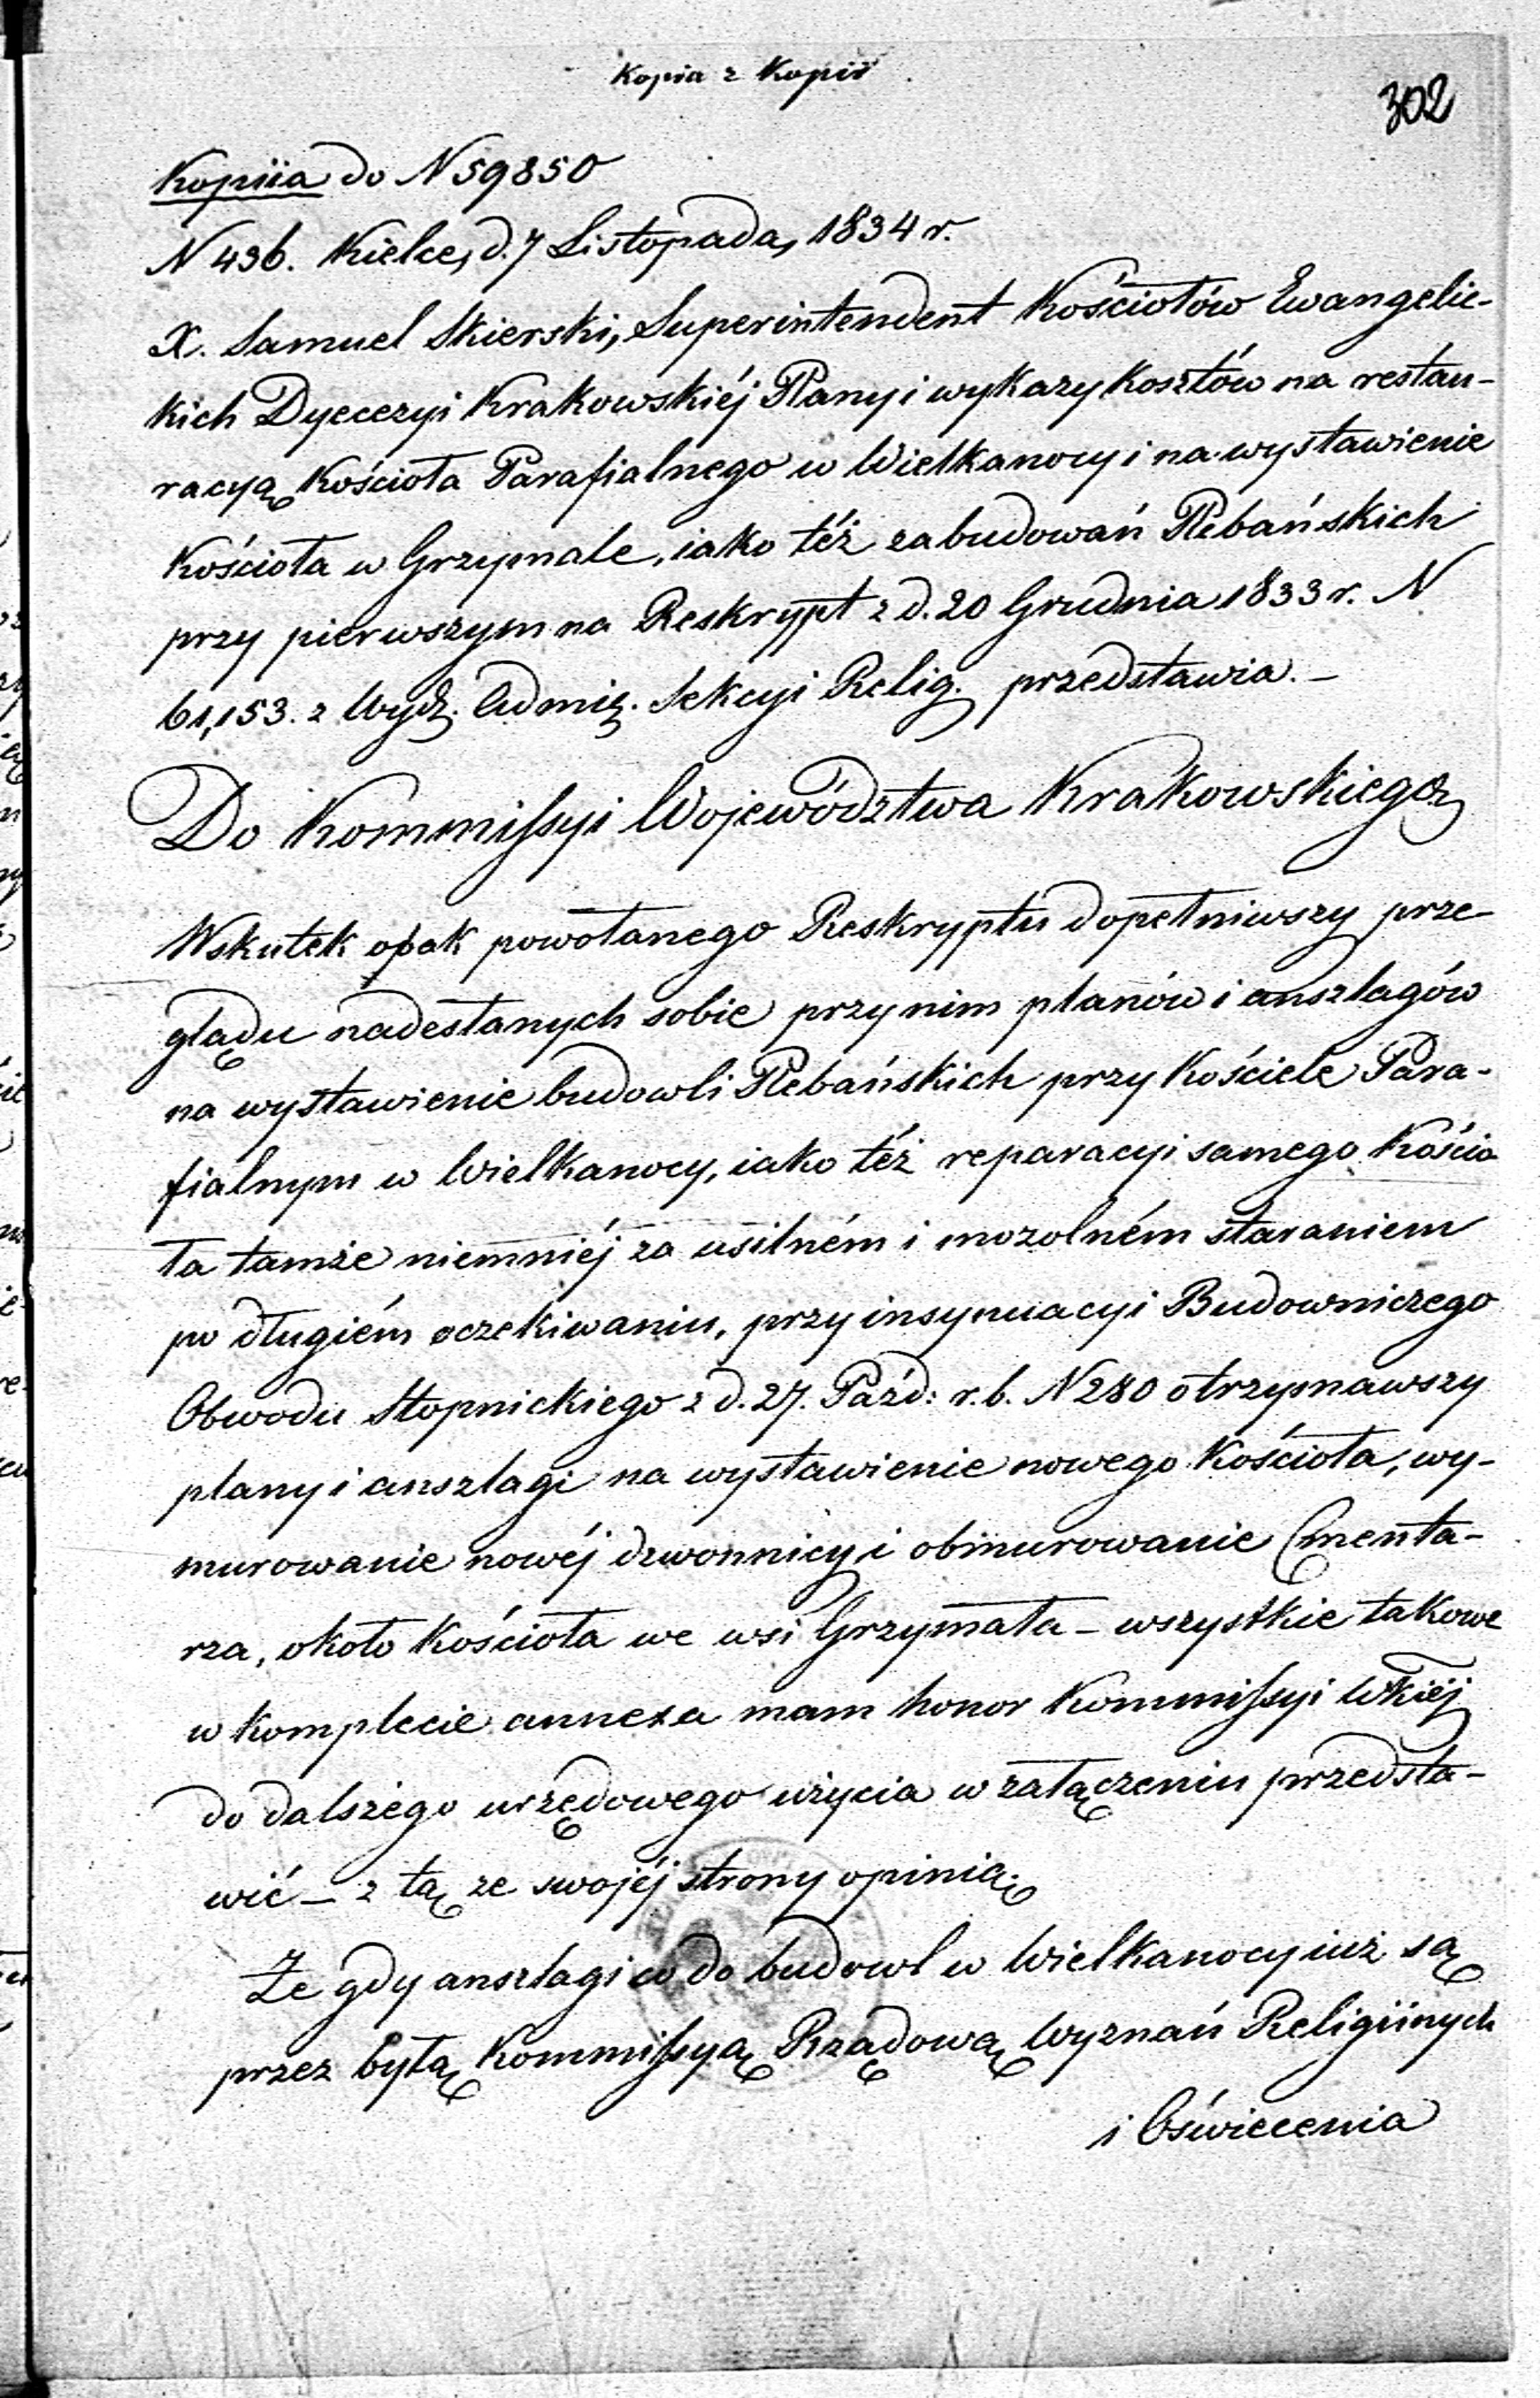 Kopia z Kopii
302
Kopiia do N 59850
N 436. Kielce, d. 7 Listopada, 1834 r.
X. Samuel Skierski, Superintendent Kościołów Ewangelic-
kich Dyecezyi Krakowskiéj Plany i wykazy Kosztów na restau-
racyą Kościoła Parafialnego w Wielkanocy i na wystawienie
Kościoła w Grzymale, iako téż zabudowań Plebańskich
przy pierwszym na Reskrypt z d. 20 Grudnia 1833 r. N
61,153. z Wydz. Admiz. Sekcyi Relig. przedstawia. –
Do Kommissyi Województwa Krakowskiego
Wskutek opak powołanego Reskryptu dopełniwszy prze-
glądu nadesłanych sobie przy nim planów i anszlagów
na wystawienie budowli Plebańskich przy Kościele Para-
fialnym w Wielkanocy, iako téż reparacyi samego Kościo
ła tamże niemniéj za usilném i mozolném staraniem
po długiém oczekiwaniu, przy insynuacyi Budowniczego
Obwodu Stopnickiego z d. 27. Paźd: r. b. N 280 otrzymawszy
plany i anszlagi na wystawienie nowego Kościoła, wy-
murowanie nowéj dzwonnicy i obmurowanie Cmenta-
rza, około Kościoła we wsi Grzymała – wszystkie takowe
w komplecie annexa mam honor Kommissyi Wkiéj
do dalszego urzędowego użycia w załączeniu przedsta-
wić – z tą ze swojéj strony opinią.
Że gdy anszlagi co do budowl w Wielkanocy iuż są
przez byłą Kommissyą Rządową Wyznań Religiinych
i Oświecenia